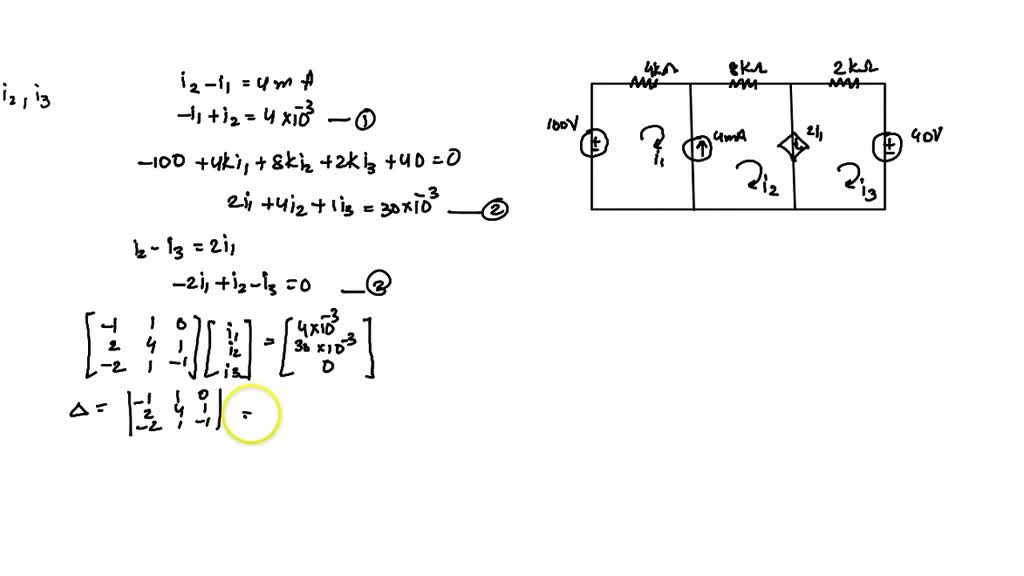 i2, i3
i2 - i1 = 4m A
-i1 + i2 = 4 × 10^-3 — ①
-100 + 4ki1 + 8ki2 + 2ki3 + 40 = 0
2i1 + 4i2 + 1i3 = 30 × 10^-3 — ②
i2 - i3 = 2i1
-2i1 + i2 - i3 = 0 — ③
[-1 1 0] [i1] = [4 × 10^-3]
[2 4 1] [i2] [30 × 10^-3]
[-2 1 -1] [i3] [0]
Δ = |-1 1 0| =
|2 4 1|
|-2 1 -1|
4kΩ 8kΩ 2kΩ
100V ± i1 4mA i2 2i1 i3 ± 40V